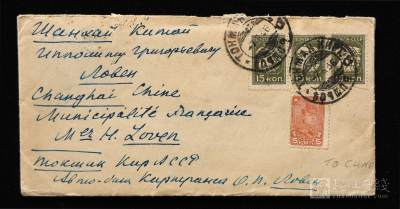 Шанхай Китай
Ипполиту Григорьевичу
Ловен
Changhai Chine
Municipalité Française
Mer H. Loven
Токмак Кир АССР
Авто-база Киртранса О.П. Ловен
15 КОП.
15 КОП.
15 КОП.
5 КОП. 5
TO CHINA